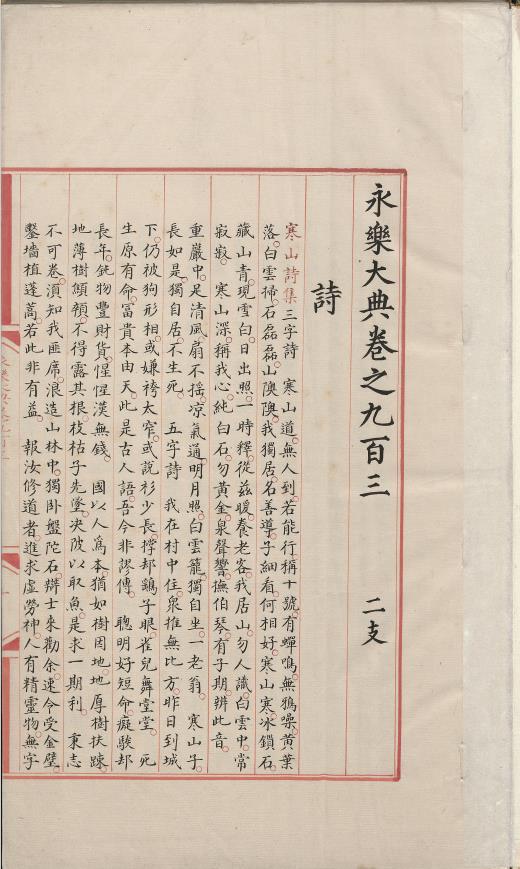 永樂大典卷之九百三　二支
詩
寒山詩集三字詩　寒山道。無人到。若能行。稱十號。有蟬鳴。無鴉噪。黃葉
落。白雲掃。石磊磊。山隩隩。我獨居。名善導。子細看。何相好。寒山寒。冰鎖石。
藏山青。現雪白。日出照。一時釋。從兹暖。養老客。我居山。勿人識。白雲中。常
寂寂。　寒山深。稱我心。純白石。勿黃金。泉聲響。撫伯琴。有子期。辨此音。
重巖中。足清風。扇不搖。凉氣通。明月照。白雲籠。獨自坐。一老翁。　寒山子。
長如是。獨自居。不生死。　五字詩　我在村中住。衆推無比方。昨日到城
下。仍被狗形相。或嫌袴太窄。或說衫少長。撑却鷂子眼。雀兒舞堂堂。　死
生原有命。冨貴本由天。此是古人語。吾今非謬傳。　聰明好短命。癡騃却
長年。鈍物豐財貨。惺惺漢無錢。　國以人爲本。猶如樹因地。地厚樹扶踈。
地薄樹傾頓。不得露其根。枝枯子先墜。决陂以取魚。是求一期利。　秉志
不可卷。湏知我匪席。浪造山林中。獨卧盤陀石。辯士來勸余。速令受金璧。
鑿墻植蓬蒿。若此非有益。　報汝修道者。進求虛勞神。人有精靈物。無字